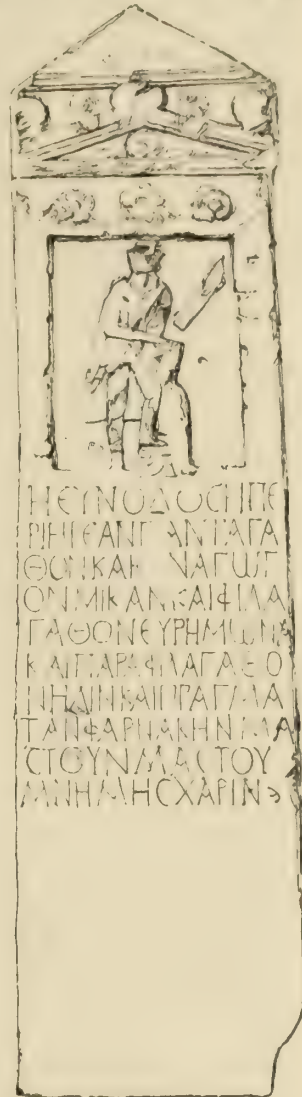 ΗΕΥΝΟΔΟϹΗΠΕ
ΡΙΗΓΕΑΝΠΑΝΤΑΓΑ
ΘΟΝΚΑΙ ΝΑΓΩΓ
ΟΝΜΙΚΑΝΚΑΙΦΙΛΑ
ΓΑΘΟΝΕΥΡΗΜΩΝΑ
ΚΑΙΠΑΡΑΦΙΛΑΓΑΘΟ
ΝΗΔΙΝΚΑΙΠΡΑΓΜΑ
ΤΑΝΦΑΡΝΑΚΗΝΜΑ
ϹΤΟΥΝΜΑϹΤΟΥ
ΜΝΗΜΗϹΧΑΡΙΝ